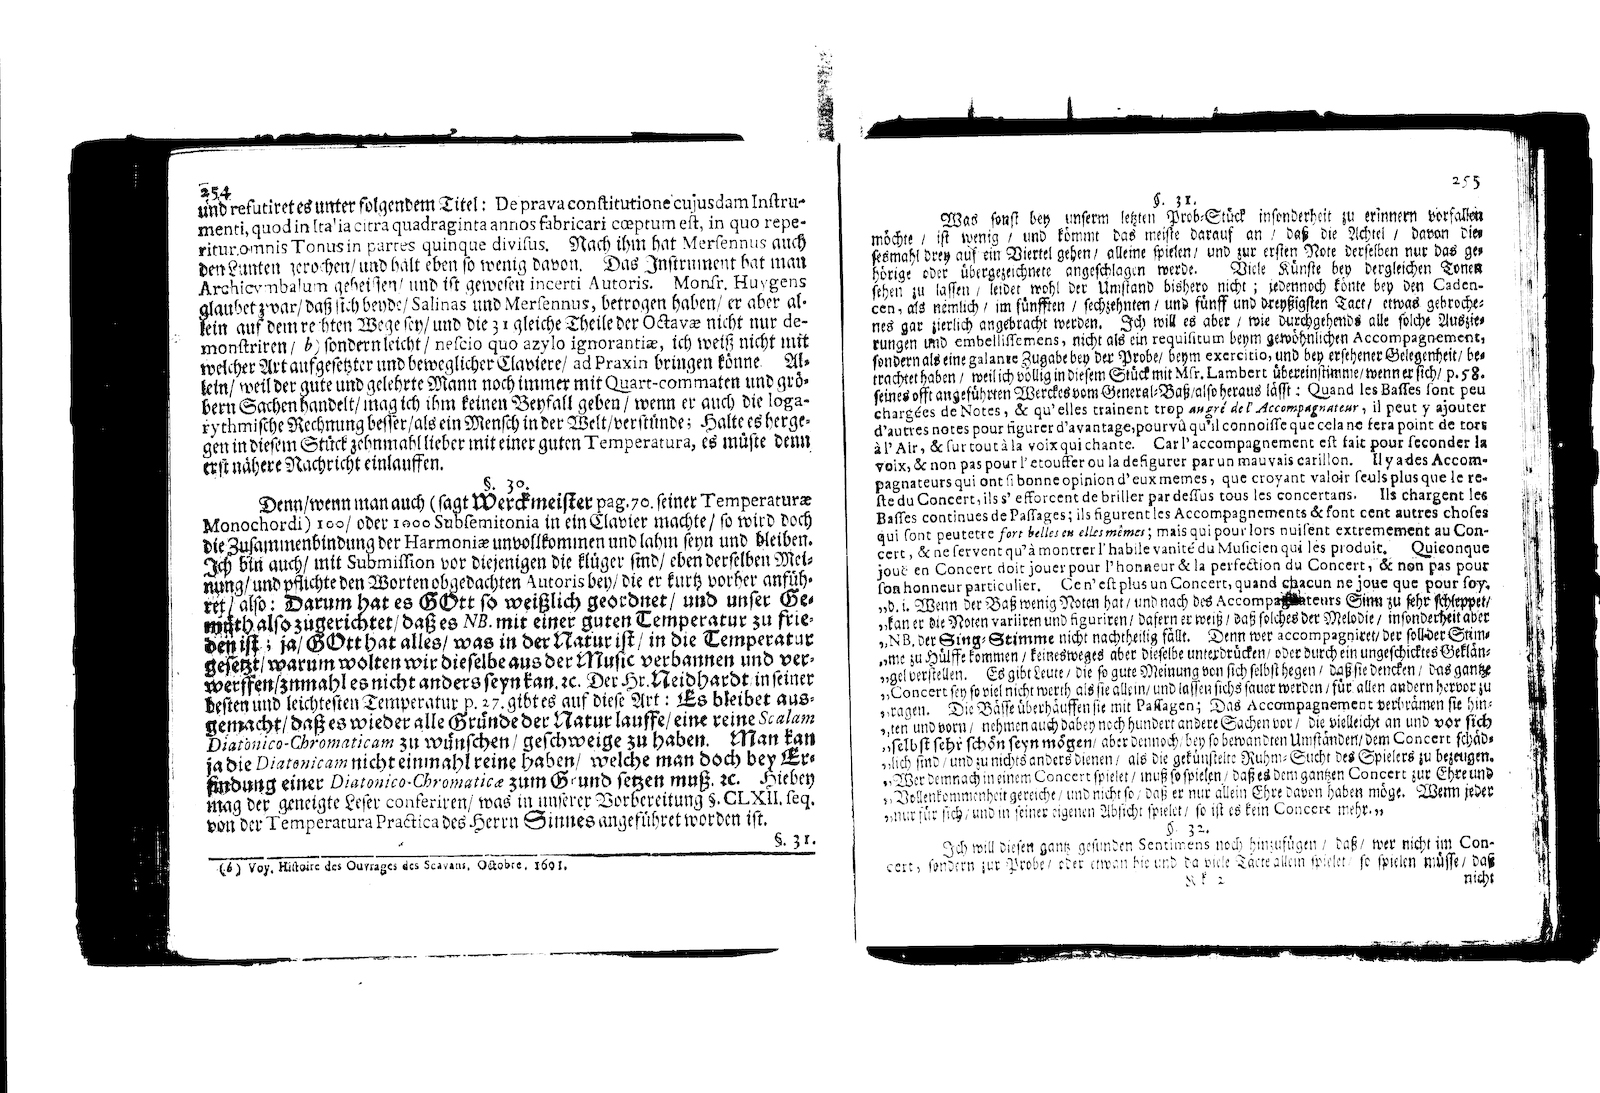 254
und refutiret es unter folgendem Titel: De prava constitutione cujusdam Instru-
menti, quod in Italia citra quadraginta annos fabricari cœptum est, in quo repe-
ritur omnis Tonus in partes quinque divisus. Nach ihm hat Mersennus auch
den Lunten gerochen/ und hält eben so wenig davon. Das Instrument hat man
Archicymbalum geheissen/ und ist gewesen incerti Autoris. Monsr. Huygens
glaubet zwar/ daß sich beyde/ Salinas und Mersennus, betrogen haben/ er aber al-
lein auf dem rechten Wege sey/ und die 31 gleiche Theile der Octavæ nicht nur de-
monstriren/ b) sondern leicht/ nescio quo azylo ignorantiæ, ich weiß nicht mit
welcher Art aufgesetzter und beweglicher Claviere/ ad Praxin bringen könne. Al-
lein/ weil der gute und gelehrte Mann noch immer mit Quart-commaten und grö-
bern Sachen handelt/ mag ich ihm keinen Beyfall geben/ wenn er auch die loga-
rythmische Rechnung besser/ als ein Mensch in der Welt/ verstünde; Halte es herge-
gen in diesem Stück zehnmahl lieber mit einer guten Temperatura, es müste denn
erst nähere Nachricht einlauffen.
§. 30.
Denn/ wenn man auch (sagt Werckmeister pag. 70. seiner Temperaturæ
Monochordi) 100/ oder 1000 Subsemitonia in ein Clavier machte/ so wird doch
die Zusammenbindung der Harmoniæ unvollkommen und lahm seyn und bleiben.
Ich bin auch/ mit Submission vor diejenigen die klüger sind/ eben derselben Mei-
nung/ und pflichte den Worten obgedachten Autoris bey/ die er kurtz vorher anfüh-
ret/ also: Darum hat es GOtt so weißlich geordnet/ und unser Ge-
müth also zugerichtet/ daß es NB. mit einer guten Temperatur zu frie-
den ist; ja/ GOtt hat alles/ was in der Natur ist/ in die Temperatur
gesetzt/ warum wolten wir dieselbe aus der Music verbannen und ver-
werffen/ znmahl es nicht anders seyn kan. ꝛc. Der Hr. Neidhardt in seiner
besten und leichtesten Temperatur p. 27. gibt es auf diese Art: Es bleibet aus-
gemacht/ daß es wieder alle Gründe der Natur lauffe/ eine reine Scalam
Diatonico-Chromaticam zu wünschen/ geschweige zu haben. Man kan
ja die Diatonicam nicht einmahl reine haben/ welche man doch bey Er-
findung einer Diatonico-Chromaticæ zum Grund setzen muß. ꝛc. Hiebey
mag der geneigte Leser conferiren/ was in unserer Vorbereitung §. CLXII. seq.
von der Temperatura Practica des Herrn Sinnes angeführet worden ist.
§. 31.
(b) Voy. Histoire des Ouvrages des Scavans, Octobre, 1691.
255
§. 31.
Was sonst bey unserm letzten Prob-Stück insonderheit zu erinnern vorfallen
möchte/ ist wenig/ und kömmt das meiste darauf an/ daß die Achtel/ davon die-
sesmahl drey auf ein Viertel gehen/ alleine spielen/ und zur ersten Note derselben nur das ge-
hörige oder übergezeichnete angeschlagen werde. Viele Künste bey dergleichen Tonen
sehen zu lassen/ leidet wohl der Umstand bishero nicht; jedennoch könte bey den Caden-
cen, als nemlich/ im fünfften/ sechzehnten/ und fünff und dreyßigsten Tact/ etwas gebroche-
nes gar zierlich angebracht werden. Ich will es aber/ wie durchgehends alle solche Auszie-
rungen und embellissemens, nicht als ein requisitum beym gewöhnlichen Accompagnement,
sondern als eine galante Zugabe bey der Probe/ beym exercitio, und bey ersehener Gelegenheit/ be-
trachtet haben/ weil ich völlig in diesem Stück mit Msr. Lambert übereinstimme/ wenn er sich/ p. 58.
seines offt angeführten Werckes vom General-Baß/ also heraus lässt: Quand les Basses sont peu
chargées de Notes, & qu'elles trainent trop augré de l'Accompagnateur, il peut y ajouter
d'autres notes pour figurer d'avantage, pourvû qu'il connoisse que cela ne fera point de tors
à l'Air, & sur tout à la voix qui chante. Car l'accompagnement est fait pour seconder la
voix, & non pas pour l'etouffer ou la defigurer par un mauvais carillon. Il y a des Accom-
pagnateurs qui ont si bonne opinion d'eux memes, que croyant valoir seuls plus que le re-
ste du Concert, ils s'efforcent de briller par dessus tous les concertans. Ils chargent les
Basses continues de Passages; ils figurent les Accompagnements & font cent autres choses
qui sont peutetre fort belles en elles mêmes; mais qui pour lors nuisent extremement au Con-
cert, & ne servent qu'à montrer l'habile vanité du Musicien qui les produit. Quiconque
joue en Concert doit jouer pour l'honneur & la perfection du Concert, & non pas pour
son honneur particulier. Ce n'est plus un Concert, quand chacun ne joue que pour soy.
„d. i. Wenn der Baß wenig Noten hat/ und nach des Accompagnateurs Sinn zu sehr schleppet/
„kan er die Noten variiren und figuriren/ dafern er weiß/ daß solches der Melodie/ insonderheit aber
„NB. der Sing-Stimme nicht nachtheilig fällt. Denn wer accompagniret/ der soll der Stim-
„me zu Hülffe kommen/ keinesweges aber dieselbe unterdrücken/ oder durch ein ungeschicktes Geklän-
„gel verstellen. Es gibt Leute/ die so gute Meinung von sich selbst hegen/ daß sie dencken/ das gantze
„Concert sey so viel nicht werth als sie allein/ und lassen sichs sauer werden/ für allen andern hervor zu
„ragen. Die Bässe überhäuffen sie mit Passagen; Das Accompagnement verbrämen sie hin-
„ten und vorn/ nehmen auch dabey noch hundert andere Sachen vor/ die vielleicht an und vor sich
„selbst sehr schön seyn mögen/ aber dennoch/ bey so bewandten Umständen/ dem Concert schäd-
„lich sind/ und zu nichts anders dienen/ als die gekünstelte Ruhm-Sucht des Spielers zu bezeugen.
„Wer demnach in einem Concert spielet/ muß so spielen/ daß es dem gantzen Concert zur Ehre und
„Vollenkommenheit gereiche/ und nicht so/ daß er nur allein Ehre davon haben möge. Wenn jeder
„nur für sich/ und in seiner eigenen Absicht spielet/ so ist es kein Concert mehr.„
§. 32.
Ich will diesen gantz gesunden Sentimens noch hinzufügen/ daß/ wer nicht im Con-
cert, sondern zur Probe/ oder etwan hie und da viele Täcte allein spielet/ so spielen müsse/ daß
Kk 2
nicht